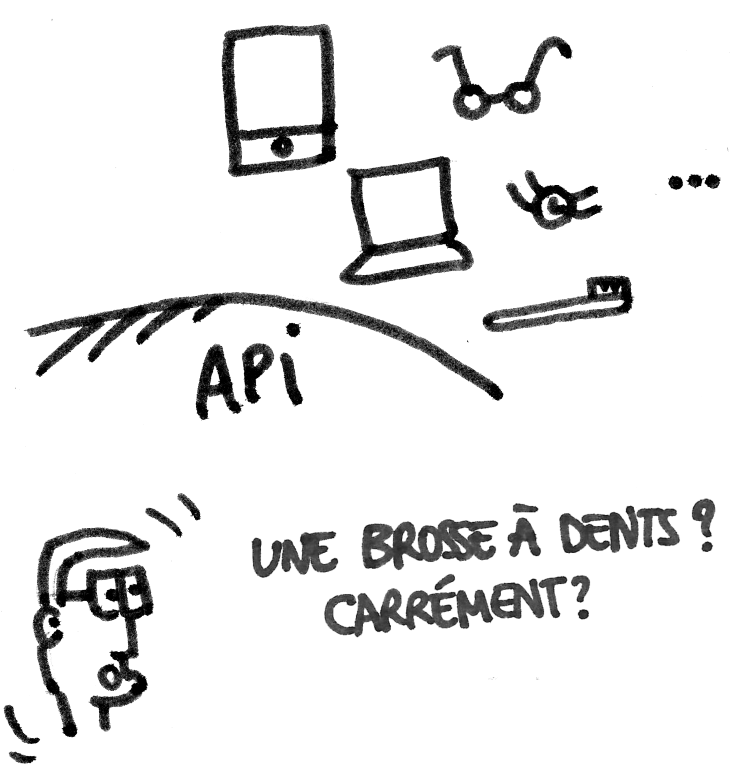 ...
APi
UNE BROSSE À DENTS ?
CARRÉMENT?